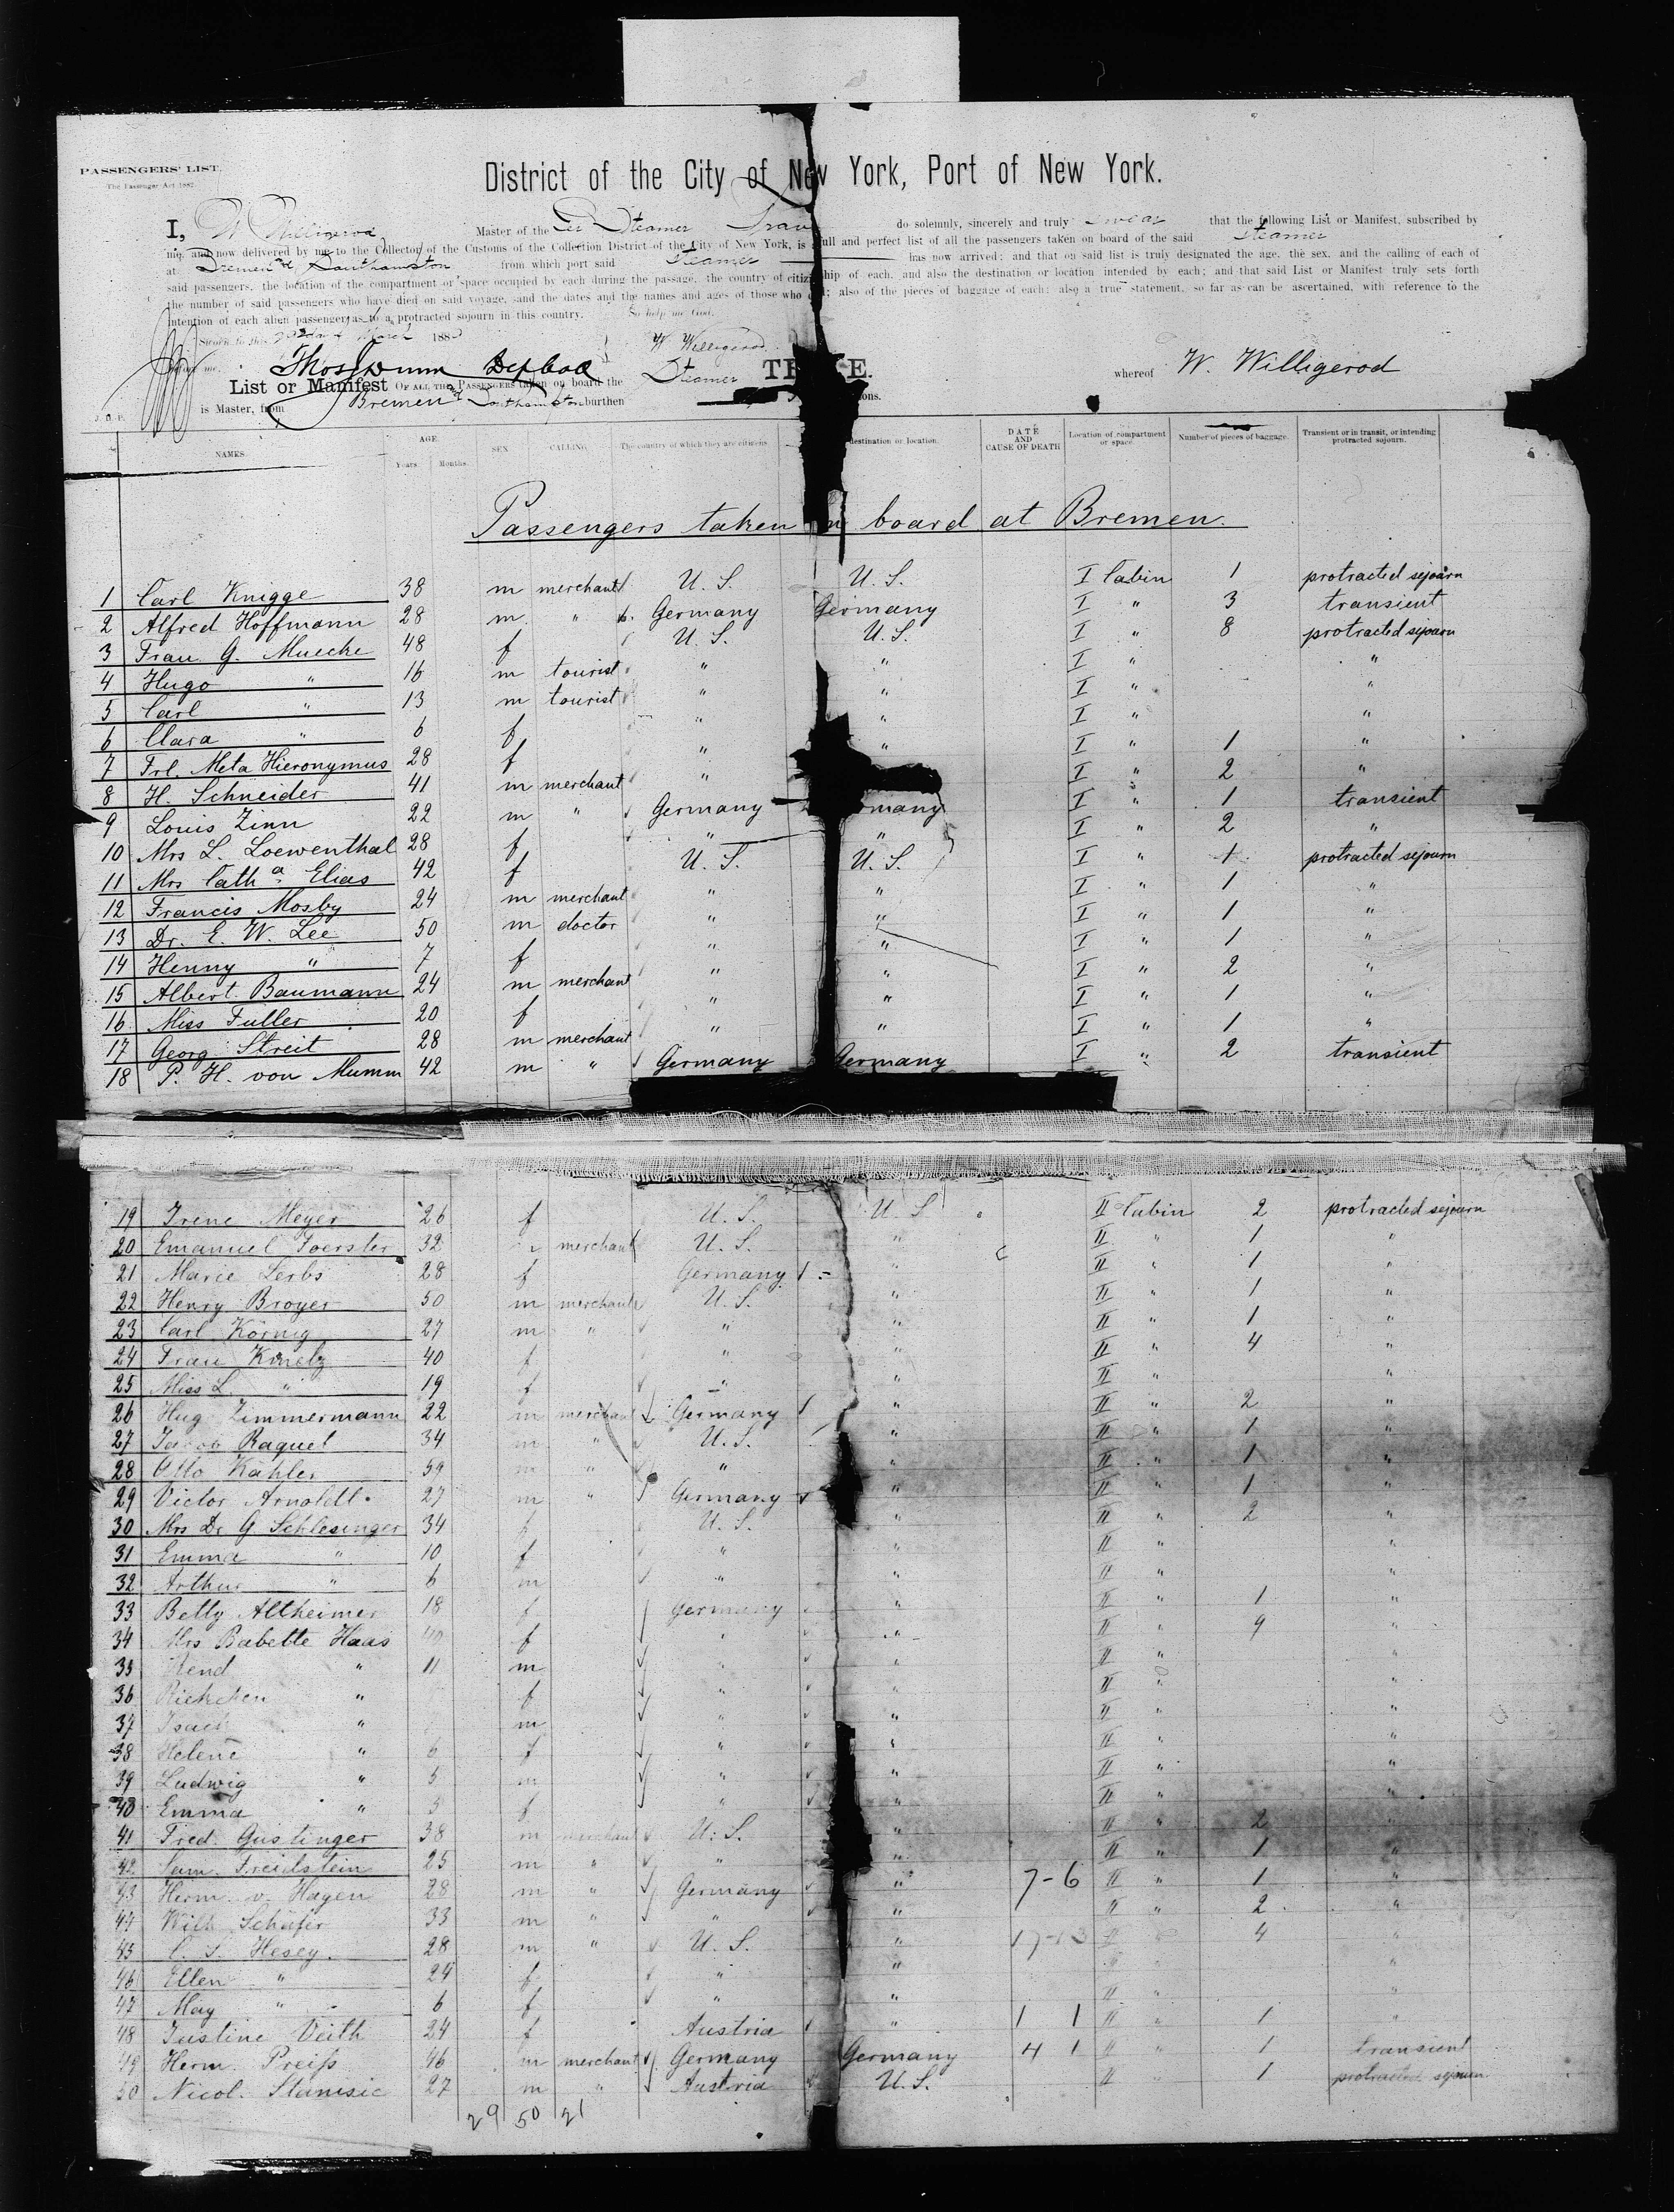 PASSENGERS' LIST.
The Passenger Act 1882
District of the City of New York, Port of New York.
I, W Willigerod Master of the Steamer Trave do solemnly, sincerely and truly swear that the following List or Manifest, subscribed by
me, and now delivered by me to the Collector of the Customs of the Collection District of the City of New York, is a full and perfect list of all the passengers taken on board of the said steamer
at Bremen and Southampton from which port said steamer has now arrived; and that on said list is truly designated the age, the sex, and the calling of each of
said passengers, the location of the compartment or space occupied by each during the passage, the country of citizenship of each, and also the destination or location intended by each; and that said List or Manifest truly sets forth
the number of said passengers who have died on said voyage, and the dates and the names and ages of those who died; also of the pieces of baggage of each; also a true statement, so far as can be ascertained, with reference to the
intention of each alien passenger as to a protracted sojourn in this country. So help me God.
Sworn to this March 188
W Willigerod
before me,
List or Manifest OF ALL THE PASSENGERS taken on board the Steamer TRAVE. whereof W. Willigerod
is Master, from Bremen & Southampton burthen tons.
NAMES. AGE. Years. Months. SEX. CALLING. The country of which they are citizens. destination or location. DATE AND CAUSE OF DEATH Location of compartment or space. Number of pieces of baggage. Transient or in transit, or intending protracted sojourn.
Passengers taken on board at Bremen.
1 Carl Knigge 38 m merchant U. S. U. S. I Cabin 1 protracted sejourn
2 Alfred Hoffmann 28 m " Germany Germany I " 3 transient
3 Frau G. Muecke 48 f U. S. U. S. I " 8 protracted sejourn
4 Hugo " 16 m tourist " " I " "
5 Carl " 13 m tourist " " I " "
6 Clara " 6 f " " I " "
7 Frl. Meta Hieronymus 28 f " " I " 1 "
8 H. Schneider 41 m merchant " I " 2 "
9 Louis Zinn 22 m " Germany Germany I " 1 transient
10 Mrs L. Loewenthal 28 f " " I " 2 "
11 Mrs Catha Elias 42 f U. S. U. S. I " 1 protracted sejourn
12 Francis Mosby 24 m merchant " " I " 1 "
13 Dr. E. W. Lee 50 m doctor " " I " 1 "
14 Henny " 7 f " " I " 1 "
15 Albert Baumann 24 m merchant " " I " 2 "
16 Miss Fuller 20 f " " I " 1 "
17 Georg Streit 28 m merchant " " I " 1 "
18 P. H. von Mumm 42 m " Germany Germany I " 2 transient
19 Irene Meyer 26 f U. S. U. S II Cabin 2 protracted sejourn
20 Emanuel Foerster 32 merchant U. S. " II " 1 "
21 Marie Lerbs 28 f Germany " II " 1 "
22 Henry Broyer 50 m merchant U. S. " II " 1 "
23 Carl Körnig 27 m " " " II " 1 "
24 Frau 40 f " " II " 4 "
25 Miss L. " 19 f " " II " "
26 Hug Zimmermann 22 m merchant Germany " II " 2 "
27 Jacob Raquel 34 m " U. S. " II " 1 "
28 Otto Kähler 39 m " " " II " 1 "
29 Victor Arnoldt 27 m " Germany " II " 1 "
30 Mrs Dr G Schlesinger 34 f U. S. " II " 2 "
31 Emma " 10 f " " II " "
32 Arthur " 6 m " " II " "
33 Betty Altheimer 18 f Germany " II " 1 "
34 Mrs Babette Haas 40 f " " II " 9 "
35 " 11 m " " II " "
36 Rickchen " f " " II " "
37 Isack " m " " II " "
38 Helene " 6 f " " II " "
39 Ludwig " 5 m " " II " "
40 Emma " 3 f " " II " "
41 Fred. Gustinger 38 m merchant U. S. " II " 2 "
42 Sam. Freidstein 25 m " " " II " 1 "
43 Herm. v. Hagen 28 m " Germany " 7-6 II " 1 "
44 Wilh Schäfer 33 m " " " II " 2 "
45 C. S. Hesey. 28 m " U. S. " II " 4 "
46 Ellen " 24 f " " II " "
47 May " 6 f " " II " "
48 Justine Veith 24 f Austria " 1 1 II " 1 "
49 Herm. Preiß 46 m merchant Germany Germany 4 1 II " 1 transient
50 Nicol. Stanisic 27 m " Austria U. S. II " 1 protracted sejourn
29 50 21